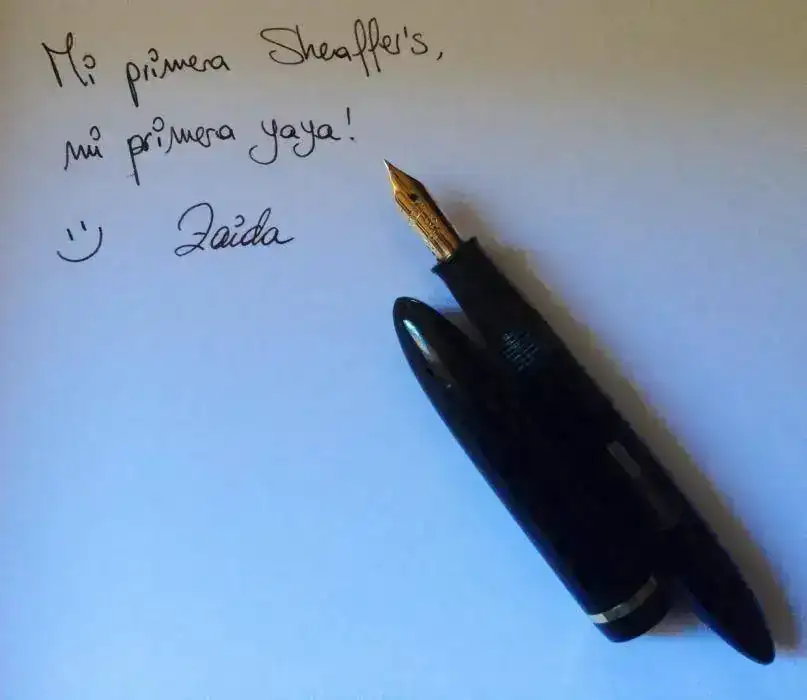 Mi primera Sheaffer's,
mi primera yaya!
Zaida